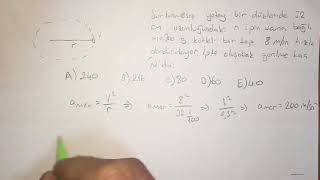 Sürtünmesiz yatay bir düzlemde 32
cm uzunluğundaki r ipin ucuna bağlı
kütleli bir top 8 m/sn hızla
döndürülüyor ipte oluşacak gerilme kaç
N'dur.
r
A) 240 B) 216 C) 80 D) 60 E) 40
amer = V²/r ⇒ amer = 8²/32 ⇒ ⇒ amer = 200 m/sn²